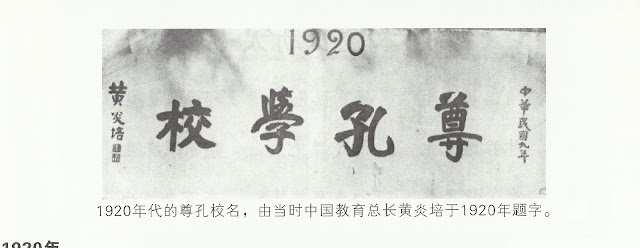 1920
中華民國九年
尊孔學校
黄炎培
1920年代的尊孔校名，由当时中国教育总长黄炎培于1920年题字。
1920年